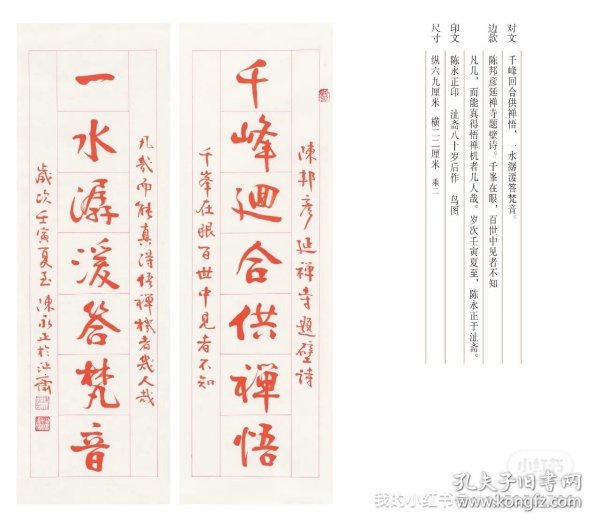 千峰迴合供禪悟
陳邦彥延禪寺題壁詩
千峯在眼百世中見者不知
一水潺湲答梵音
凡幾而能真得悟禪機者幾人哉
歲次壬寅夏至陳永正於沚齋
对文　千峰回合供禅悟，一水潺湲答梵音。
边款　陈邦彦延禅寺题壁诗。千峯在眼，百世中见者不知
凡几，而能真得悟禅机者几人哉。岁次壬寅夏至，陈永正于沚斋。
印文　陈永正印　沚斋八十岁后作　鸟图
尺寸　纵六九厘米　横二二厘米　乘二
小红书
我的小红书
孔夫子旧书网
kongfz.com